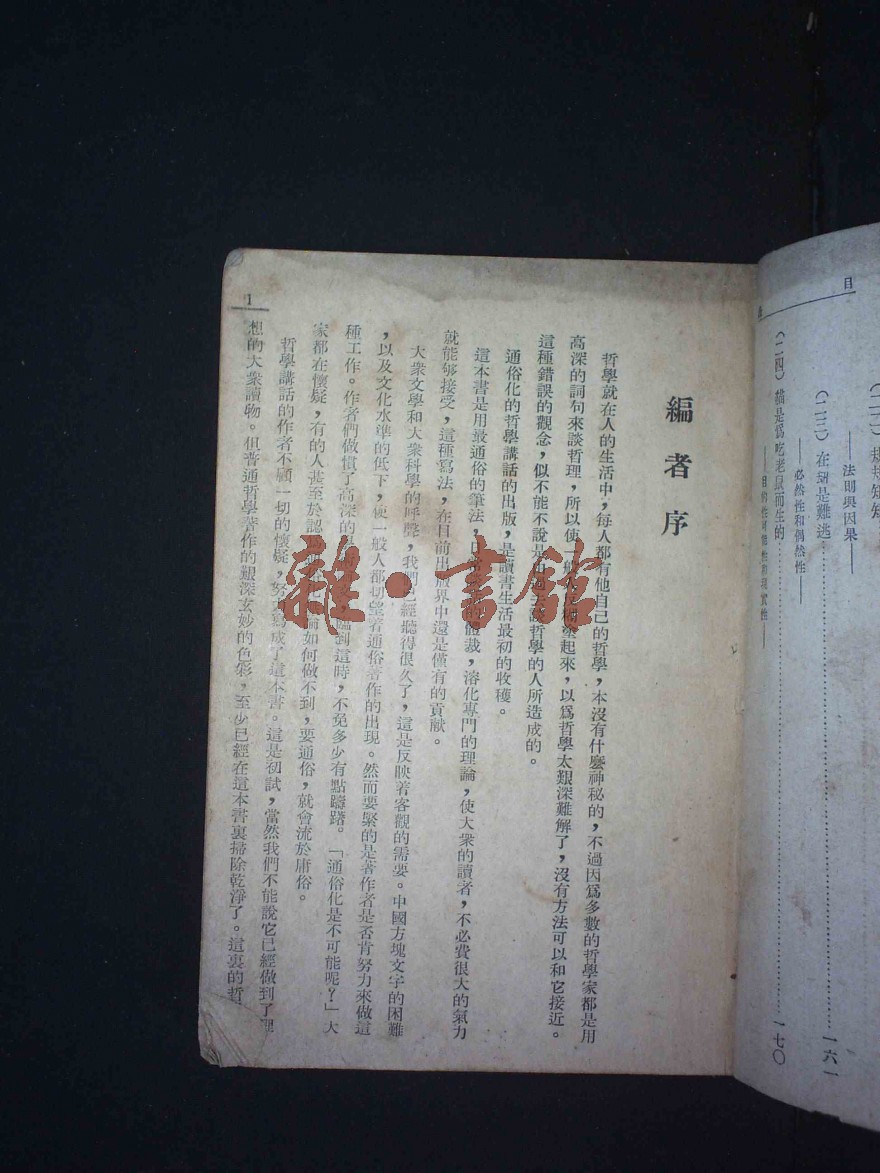 目
(二二)規規矩矩
——法則與因果——
(二三)在劫是難逃……一六一
——必然性和偶然性——
(二四)貓是爲吃老鼠而生的……一七〇
編者序
哲學就在人的生活中,每人都有他自己的哲學,本沒有什麼神秘的,不過因爲多數的哲學家都是用
高深的詞句來談哲理,所以使一般人起來,以爲哲學太艱深難解了,沒有方法可以和它接近。
這種錯誤的觀念,似不能不說是由過去談哲學的人所造成的。
通俗化的哲學講話的出版,是讀書生活最初的收穫。
這本書是用最通俗的筆法,日常體裁,溶化專門的理論,使大衆的讀者,不必費很大的氣力
就能够接受,這種寫法,在目前出版界中還是僅有的貢献。
大衆文學和大衆科學的呼聲,我們已經聽得很久了,這是反映着客觀的需要。中國方塊文字的困難
,以及文化水準的低下,使一般人都切望着通俗著作的出現。然而要緊的是著作者是否肯努力來做這
種工作。作者們做慣了高深的臨到這時,不免多少有點躊躇。「通俗化是不可能呢?」大
家都在懷疑,有的人甚至於認爲如何做不到,要通俗,就會流於庸俗。
哲學講話的作者不顧一切的懷疑,努力寫成了這本書。這是初試,當然我們不能說它已經做到了理
想的大衆讀物。但普通哲學著作的艱深玄妙的色彩,至少已經在這本書裏掃除乾淨了。這裏的哲
1
雜·書館